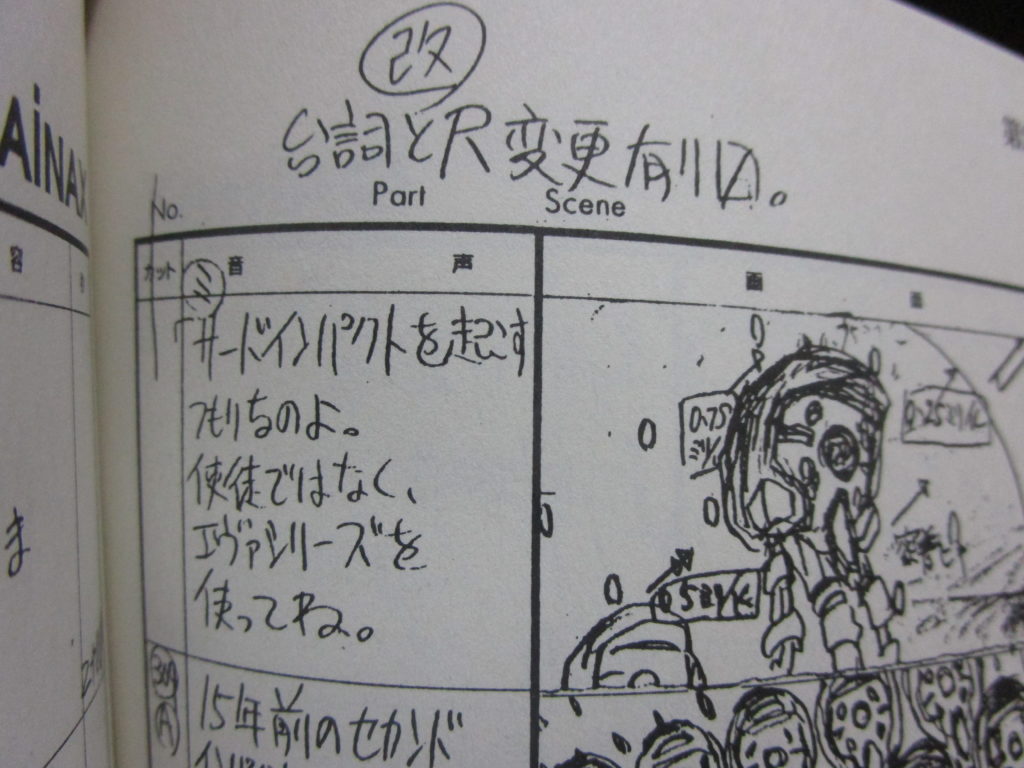 AiNAX
容
ま
改
台詞と尺変更有り〼。
No.
Part
Scene
カット
音声
画面
「サードインパクトを起こす
つもりなのよ。
使徒ではなく、
エヴァシリーズを
使ってね。
0.75
ミリ/K
0.25ミリ/K
0.5ミリ/K
密着
304
A
15年前のセカンド